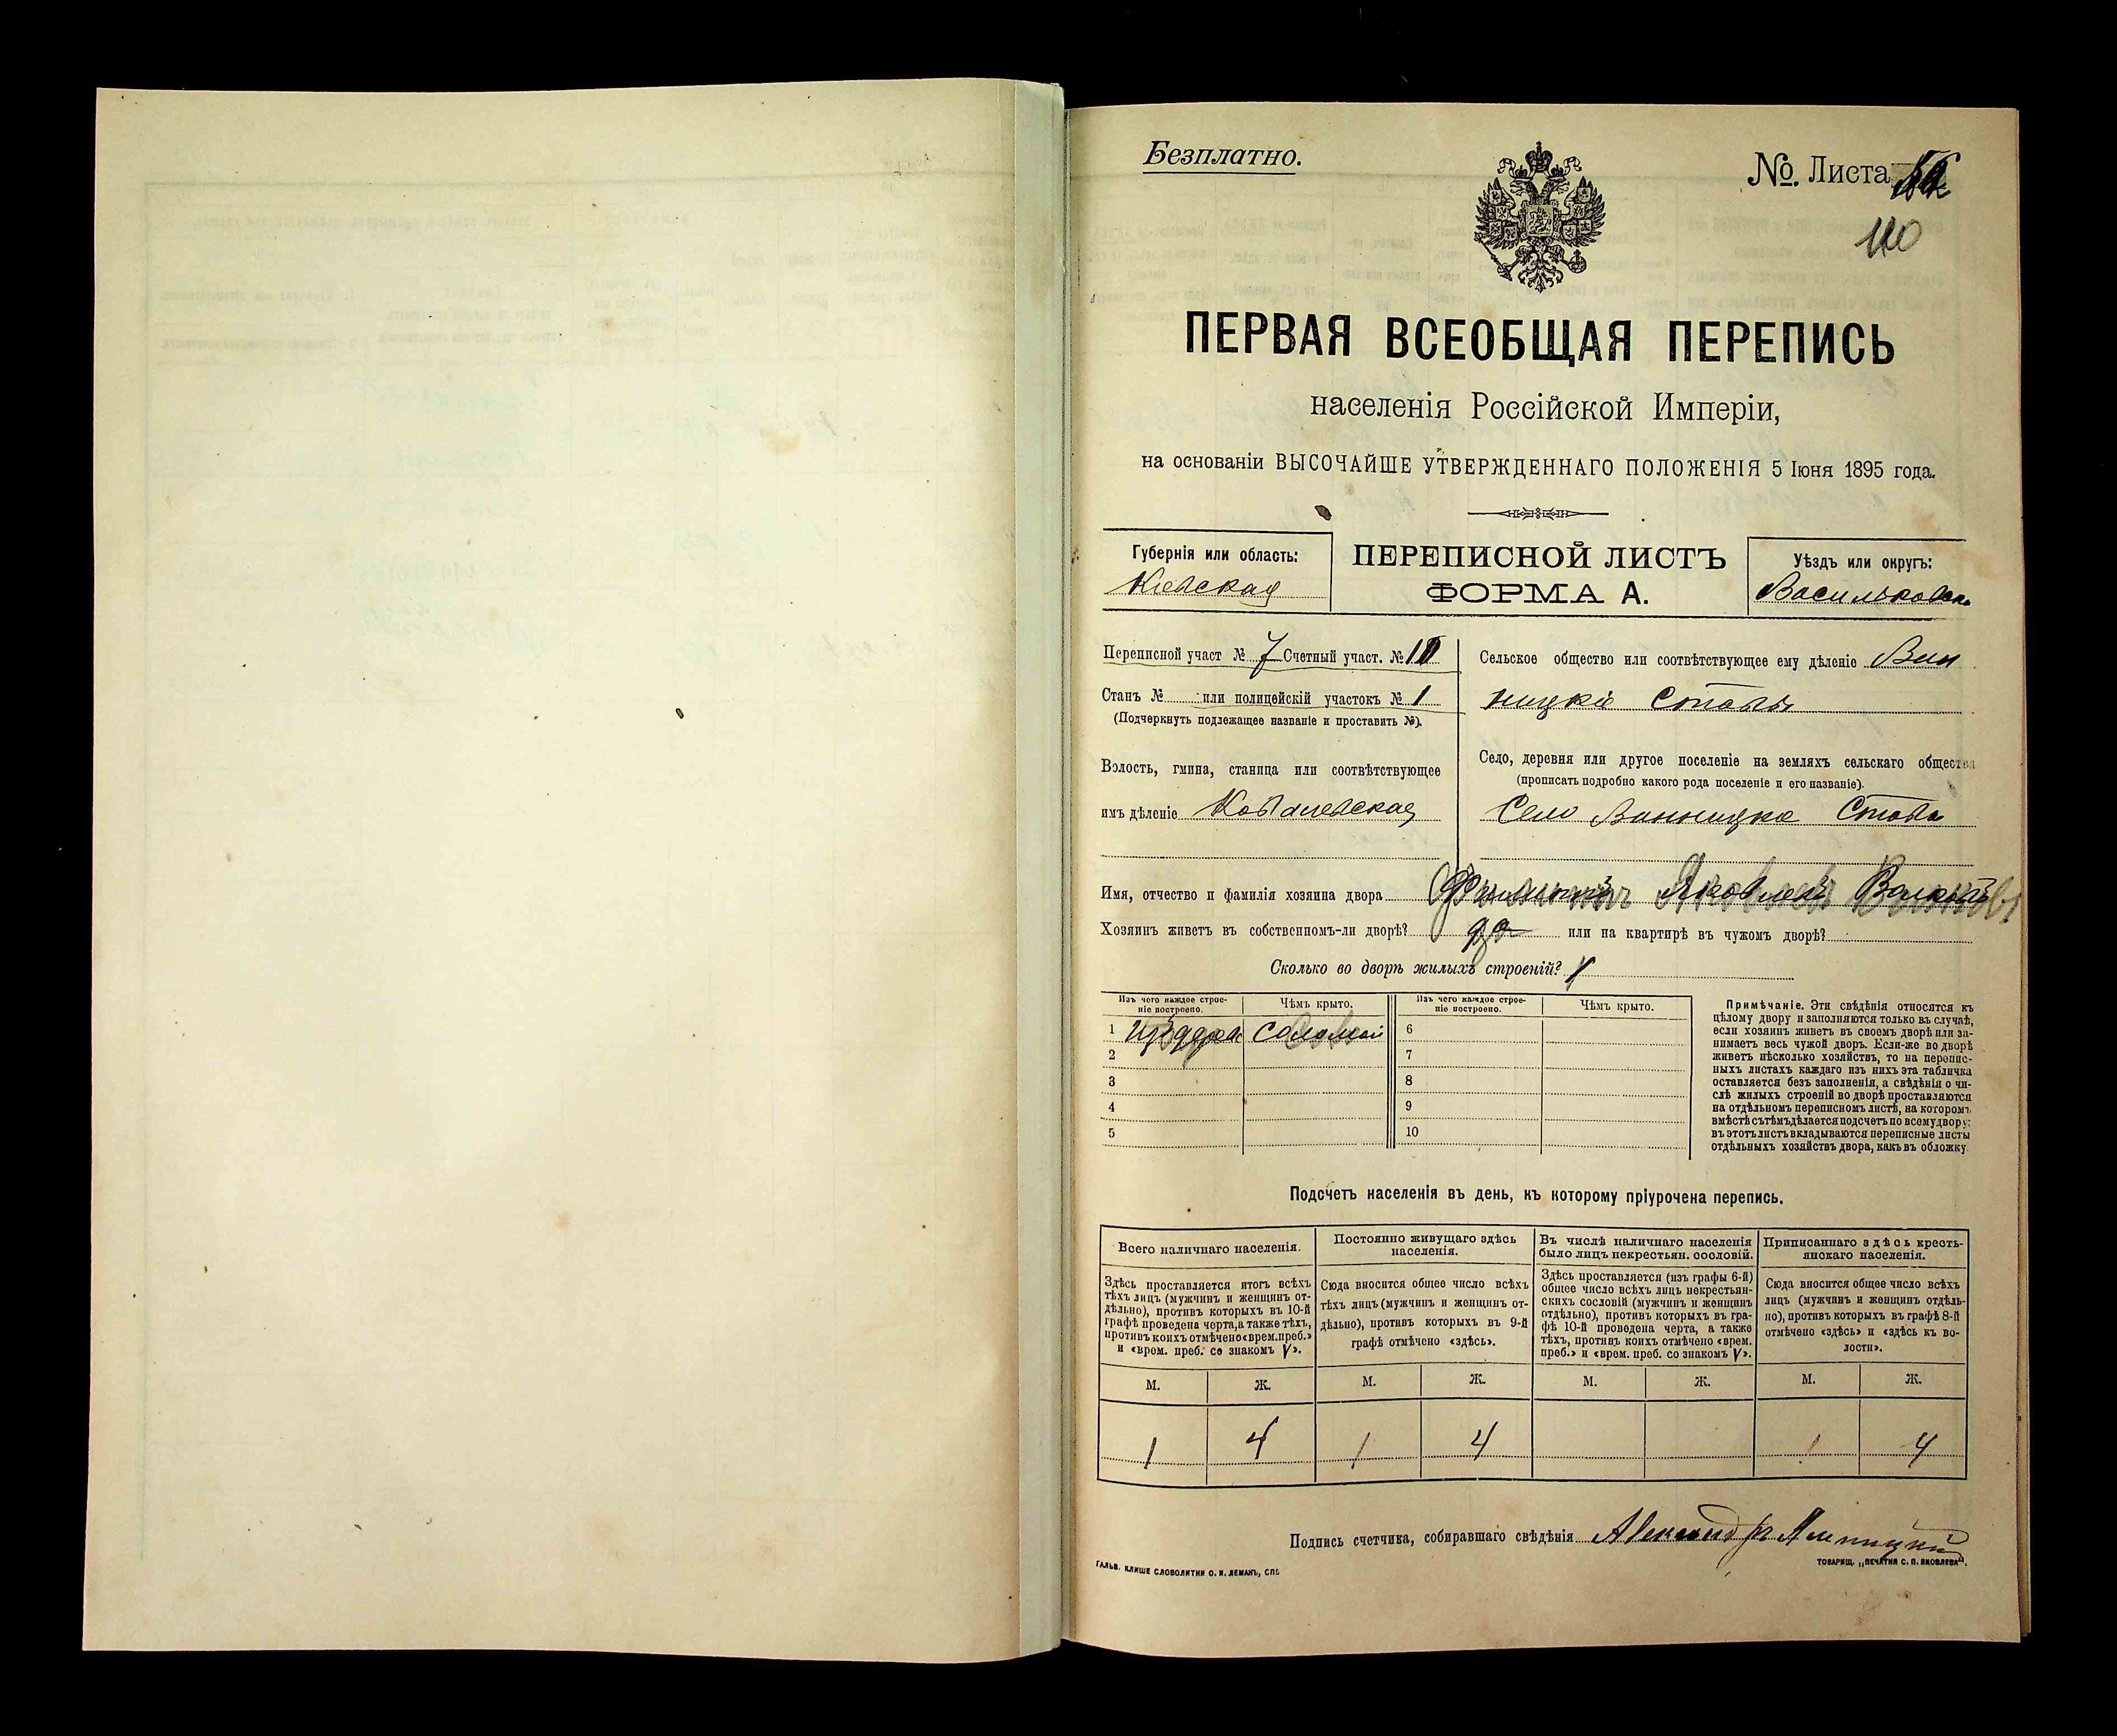 Безплатно.
№ Листа
110
ПЕРВАЯ ВСЕОБЩАЯ ПЕРЕПИСЬ
населенія Россійской Имперіи,
на основаніи ВЫСОЧАЙШЕ УТВЕРЖДЕННАГО ПОЛОЖЕНІЯ 5 Іюня 1895 года.
Губернія или область:
Кіевская
ПЕРЕПИСНОЙ ЛИСТЪ
ФОРМА А.
Уѣздъ или округъ:
Васильковск.
Переписной участ № 7 Счетный участ. №
Станъ № или полицейскій участокъ № 1
(Подчеркнуть подлежащее названіе и проставить №).
Волость, гмина, станица или соотвѣтствующее
имъ дѣленіе Ковалевская
Сельское общество или соотвѣтствующее ему дѣленіе Вин
ницкіе Ставы
Село, деревня или другое поселеніе на земляхъ сельскаго общества
(прописать подробно какого рода поселеніе и его названіе).
Село Винницке Ставы
Имя, отчество и фамилія хозяина двора Филиппъ Яковлевъ
Хозяинъ живетъ въ собственномъ-ли дворѣ? да или на квартирѣ въ чужомъ дворѣ?
Сколько во дворѣ жилыхъ строеній? 1
Изъ чего каждое строе-
ніе построено.
Чѣмъ крыто.
Изъ чего каждое строе-
ніе построено.
Чѣмъ крыто.
1 Изъ дерева Соломой 6
2 7
3 8
4 9
5 10
Примѣчаніе. Эти свѣдѣнія относятся къ
цѣлому двору и заполняются только въ случаѣ,
если хозяинъ живетъ въ своемъ дворѣ или за-
нимаетъ весь чужой дворъ. Если-же во дворѣ
живетъ нѣсколько хозяйствъ, то на перепис-
ныхъ листахъ каждаго изъ нихъ эта табличка
оставляется безъ заполненія, а свѣдѣнія о чи-
слѣ жилыхъ строеній во дворѣ проставляются
на отдѣльномъ переписномъ листѣ, на которомъ
вмѣстѣ съ тѣмъ дѣлается подсчетъ по всему двору;
въ этотъ листъ вкладываются переписные листы
отдѣльныхъ хозяйствъ двора, какъ въ обложку.
Подсчетъ населенія въ день, къ которому пріурочена перепись.
Всего наличнаго населенія.
Здѣсь проставляется итогъ всѣхъ
тѣхъ лицъ (мужчинъ и женщинъ от-
дѣльно), противъ которыхъ въ 10-й
графѣ проведена черта, а также тѣхъ,
противъ коихъ отмѣчено «врем. преб.»
и «врем. преб. со знакомъ V».
Постоянно живущаго здѣсь
населенія.
Сюда вносится общее число всѣхъ
тѣхъ лицъ (мужчинъ и женщинъ от-
дѣльно), противъ которыхъ въ 9-й
графѣ отмѣчено «здѣсь».
Въ числѣ наличнаго населенія
было лицъ некрестьян. сословій.
Здѣсь проставляется (изъ графы 6-й)
общее число всѣхъ лицъ некрестьян-
скихъ сословій (мужчинъ и женщинъ
отдѣльно), противъ которыхъ въ гра-
фѣ 10-й проведена черта, а также
тѣхъ, противъ коихъ отмѣчено «врем.
преб.» и «врем. преб. со знакомъ V».
Приписаннаго здѣсь кресть-
янскаго населенія.
Сюда вносится общее число всѣхъ
лицъ (мужчинъ и женщинъ отдѣль-
но), противъ которыхъ въ графѣ 8-й
отмѣчено «здѣсь» и «здѣсь къ во-
лости».
М. Ж. М. Ж. М. Ж. М. Ж.
1 4 1 4 1 4
Подпись счетчика, собиравшаго свѣдѣнія Александръ
ГАЛЬВ. КЛИШЕ СЛОВОЛИТНИ О. И. ЛЕМАНЪ, СПБ
ТОВАРИЩ. „ПЕЧАТНЯ С. П. ЯКОВЛЕВА“.